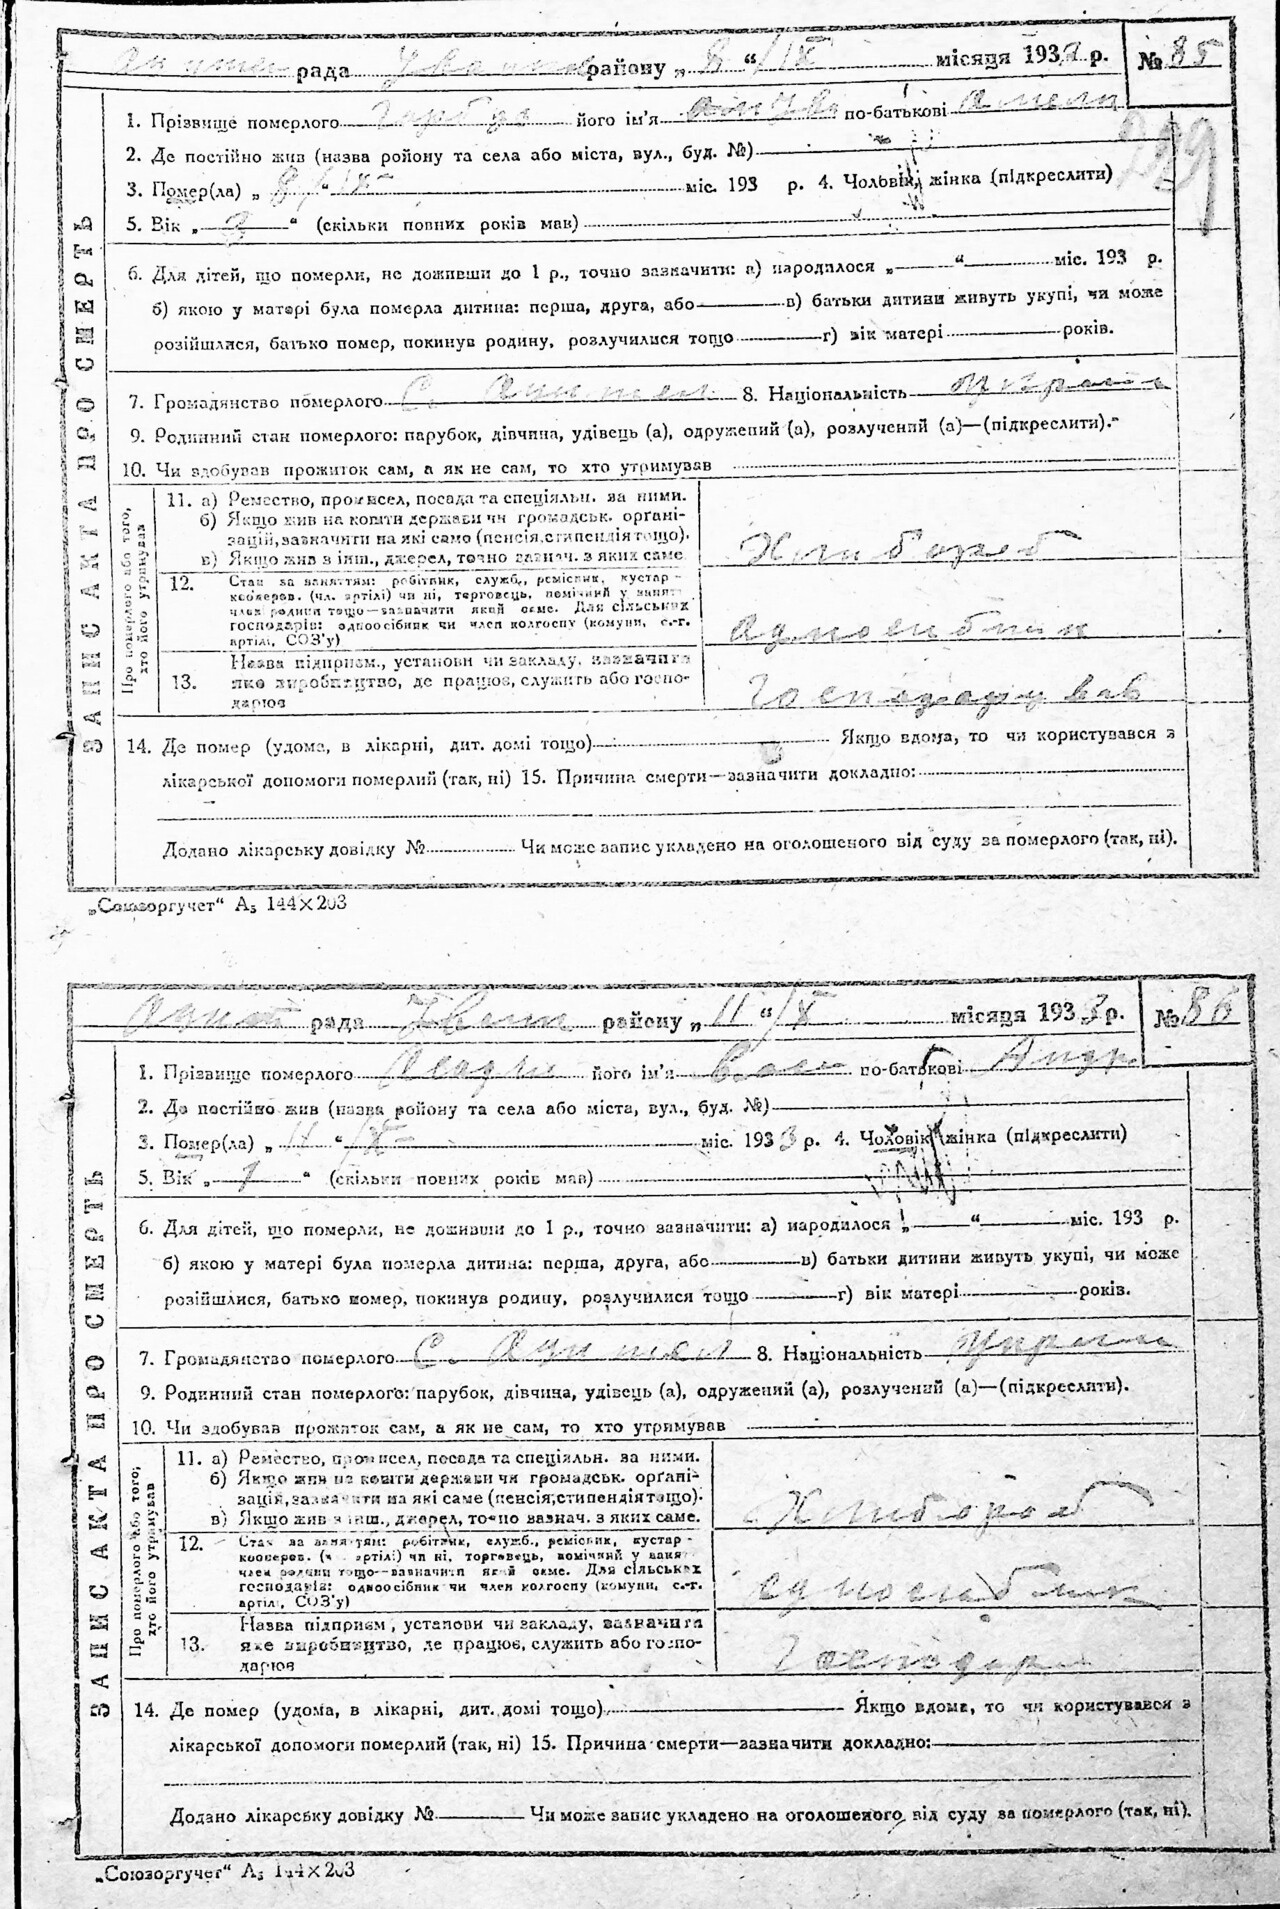 рада району „ 8 “ / IX місяця 193 р. № 85
1. Прізвище померлого його ім'я по-батькові
2. Де постійно жив (назва ройону та села або міста, вул., буд. №)
3. Помер(ла) „ 8 / IX міс. 193 р. 4. Чоловік, жінка (підкреслити)
5. Вік „ “ (скільки повних років мав)
6. Для дітей, що померли, не доживши до 1 р., точно зазначити: а) народилося „ “ міс. 193 р.
б) якою у матері була померла дитина: перша, друга, або в) батьки дитини живуть укупі, чи може
розійшлися, батько помер, покинув родину, розлучилися тощо г) вік матері років.
7. Громадянство померлого С. 8. Національність
9. Родинний стан померлого: парубок, дівчина, удівець (а), одружений (а), розлучений (а)—(підкреслити).
10. Чи здобував прожиток сам, а як не сам, то хто утримував
Про померлого або того, хто його утримував
11. а) Ремество, промисел, посада та спеціяльн. за ними.
б) Якщо жив на кошти держави чи громадськ. орґані-
зацій, зазначити на які само (пенсія, стипендія тощо).
в) Якщо жив з інш., джерел, точно зазнач. з яких саме
Хлибороб
12. Стан за заняттям: робітник, служб., ремісник, кустар-
кооперов. (чл. артілі) чи ні, торговець, помічний у занят.
член родини тощо—зазначити який саме. Для сільських
господарів: одноосібник чи член колгоспу (комуни, с.-г.
артілі, СОЗ'у)
одноосибник
13. Назва підприєм., установи чи закладу, зазначити
яке виробництво, де працює, служить або госпо-
дарює
Господарував
14. Де помер (удома, в лікарні, дит. домі тощо) Якщо вдома, то чи користувався з
лікарської допомоги померлий (так, ні) 15. Причина смерти—зазначити докладно:
Додано лікарську довідку № Чи може запис укладено на оголошеного від суду за померлого (так, ні).
ЗАПИС АКТА ПРО СМЕРТЬ
„Союзоргучет“ А₅ 144×203
рада району „ 11 “ / IX місяця 1933 р. № 86
1. Прізвище померлого його ім'я по-батькові Андр
2. Де постійно жив (назва ройону та села або міста, вул., буд. №)
3. Помер(ла) „ 11 “ / IX міс. 1933 р. 4. Чоловік, жінка (підкреслити)
5. Вік „ 1 “ (скільки повних років мав)
6. Для дітей, що померли, не доживши до 1 р., точно зазначити: а) народилося „ “ міс. 193 р.
б) якою у матері була померла дитина: перша, друга, або в) батьки дитини живуть укупі, чи може
розійшлися, батько помер, покинув родину, розлучилися тощо г) вік матері років.
7. Громадянство померлого С. 8. Національність
9. Родинний стан померлого: парубок, дівчина, удівець (а), одружений (а), розлучений (а)—(підкреслити).
10. Чи здобував прожиток сам, а як не сам, то хто утримував
Про померлого або того, хто його утримував
11. а) Ремество, промисел, посада та спеціяльн. за ними.
б) Якщо жив на кошти держави чи громадськ. орґані-
зацій, зазначити на які саме (пенсія, стипендія тощо).
в) Якщо жив з інш., джерел, точно зазнач. з яких саме.
Хлибороб
12. Стан за заняттям: робітник, служб., ремісник, кустар-
кооперов. (чл. артілі) чи ні, торговець, помічний у занят.
член родини тощо—зазначити який саме. Для сільських
господарів: одноосібник чи член колгоспу (комуни, с.-г.
артілі, СОЗ'у)
одноосиблик
13. Назва підприєм., установи чи закладу, зазначити
яке виробництво, де працює, служить або госпо-
дарює
Господар
14. Де помер (удома, в лікарні, дит. домі тощо) Якщо вдома, то чи користувався з
лікарської допомоги померлий (так, ні) 15. Причина смерти—зазначити докладно:
Додано лікарську довідку № Чи може запис укладено на оголошеного від суду за померлого (так, ні).
ЗАПИС АКТА ПРО СМЕРТЬ
„Союзоргучет“ А₅ 144×203